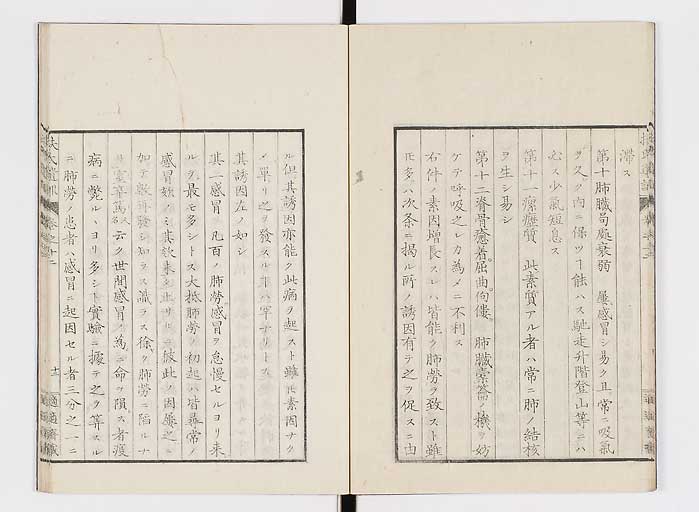 滞ス
第十肺臓局處衰弱 屢感冒シ易ク且常ニ吸氣
ヲ久ク内ニ保ツヿ能ハス馳走升階登山等ニハ
必ス少氣短息ス
第十一瘰癧質 此素質アル者ハ常ニ肺ノ結核
ヲ生シ易シ
第十二脊骨癒着屈曲佝僂 肺臓橐籥ノ機ヲ妨
ケテ呼吸之レカ為メニ不利ス
右件ノ素因増長スレハ皆能ク肺勞ヲ致スト雖
𪜈多ハ次条ニ掲ル所ノ誘因有テ之ヲ促スニ由
ル但其誘因亦能ク此病ヲ起スト雖𪜈素因ナク
メ單リ之ヲ發スル
其誘因左ノ如シ
其一感冒 凡百ノ肺勞感冒ヲ怠慢セルヨリ来
ルヲ最モ多シトス大抵肺勞ノ初起ハ皆尋常ノ
感冒欬ノミ其欬未タ止サルニ彼此ノ因
加テ 再發シ知ラス識ラス徐ク肺勞ニ陥ルナ
リ 云ク世間感冒ノ為ニ命ヲ隕ス者疫
病ニ斃ルヽヨリ多シト實驗ニ據テ之ヲ算スル
ニ肺勞ノ患者ハ感冒ニ起因セル者三分之一ニ
十一
適適齋藏